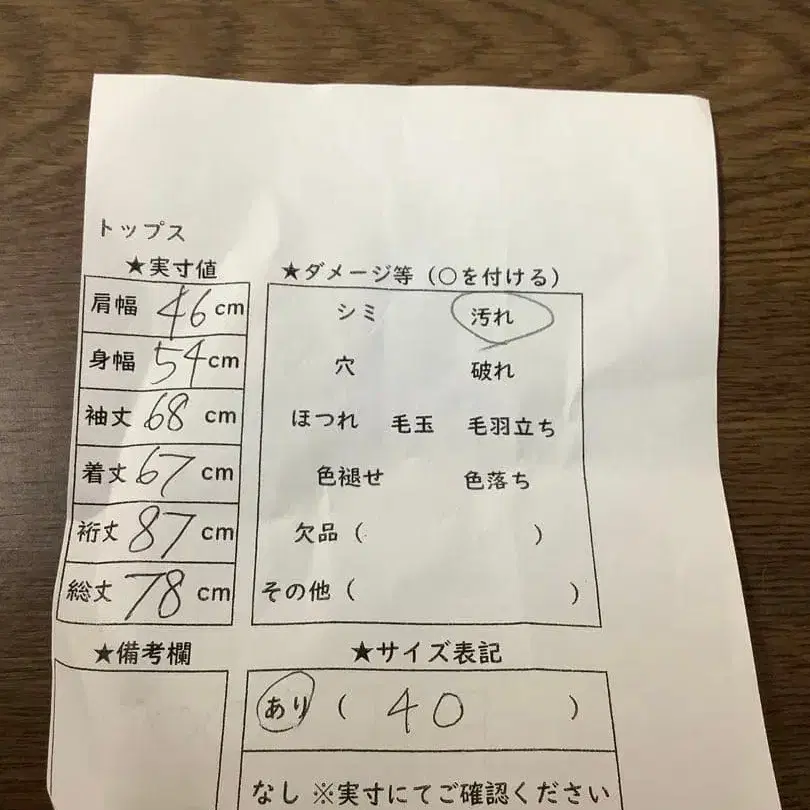 トップス
★実寸値
肩幅 46 cm
身幅 54 cm
袖丈 68 cm
着丈 67 cm
裄丈 87 cm
総丈 78 cm
★ダメージ等(○を付ける)
シミ 汚れ
穴 破れ
ほつれ 毛玉 毛羽立ち
色褪せ 色落ち
欠品( )
その他( )
★備考欄
★サイズ表記
あり( 40 )
なし ※実寸にてご確認ください